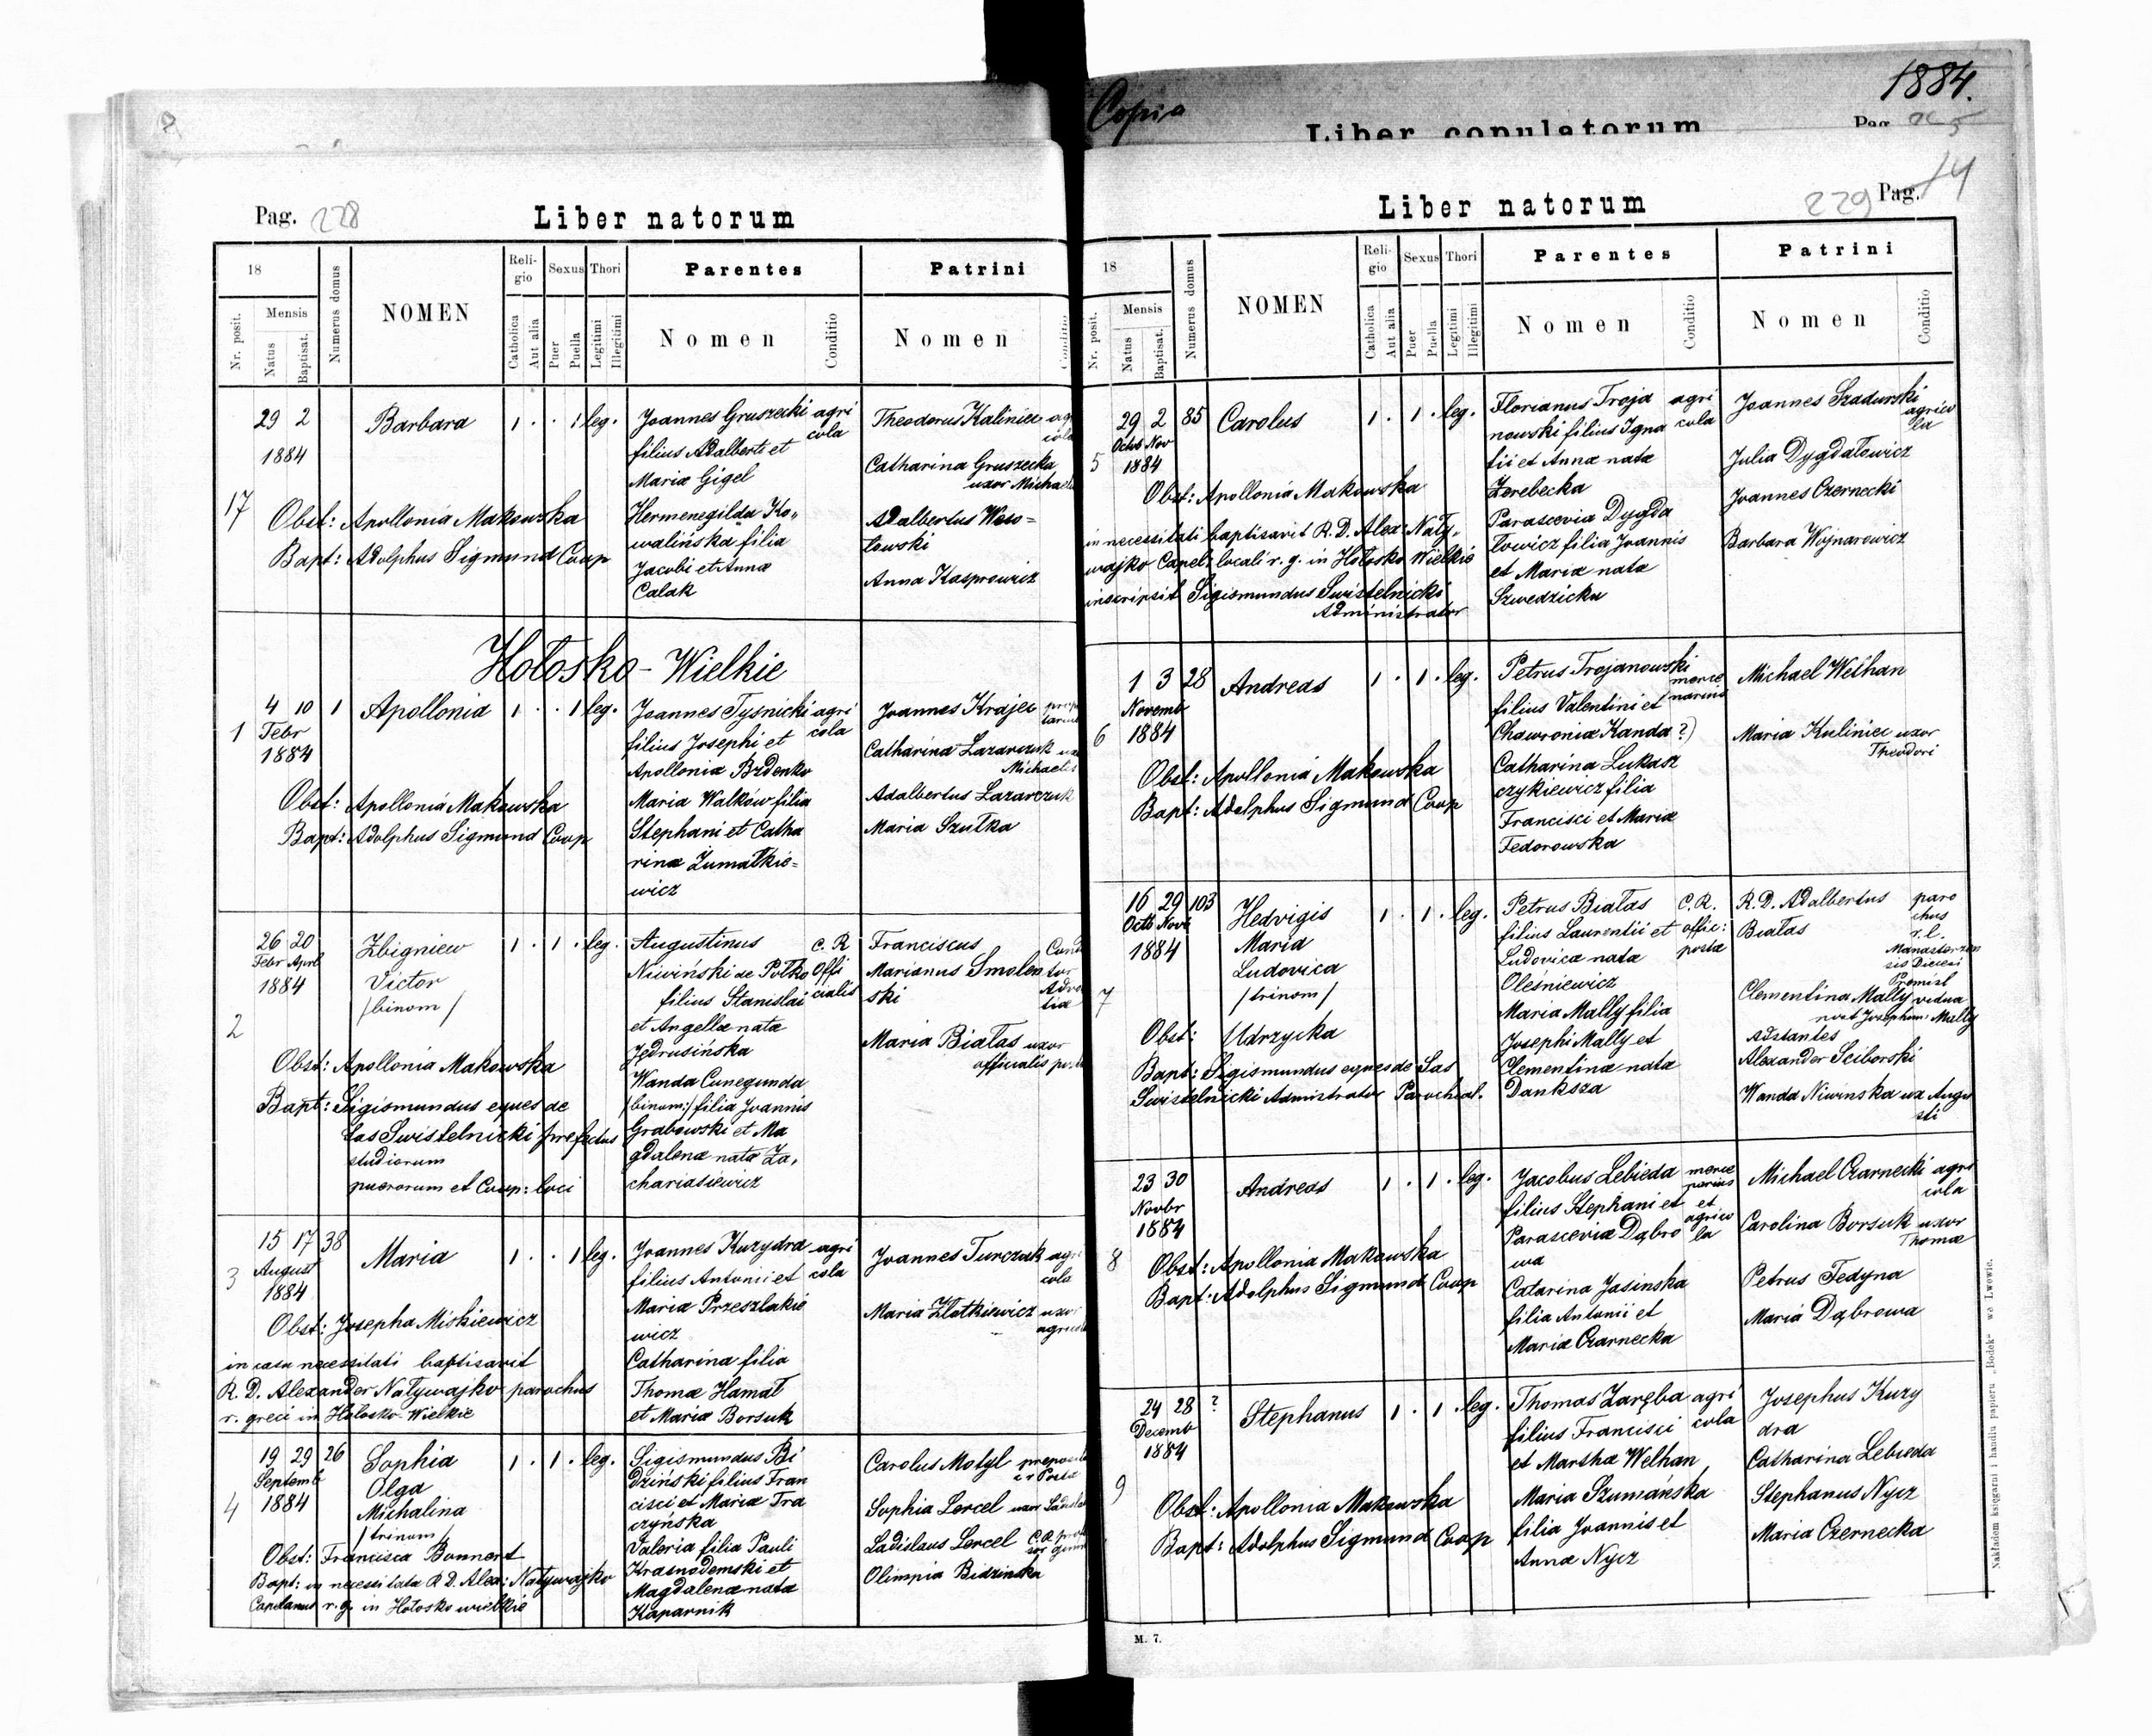 Copia
1884.
Liber copulatorum
Pag.
Pag. 228
Liber natorum
18
Nr. posit.
Mensis
Natus
Baptisat.
Numerus domus
NOMEN
Religio
Catholica
Aut alia
Sexus
Puer
Puella
Thori
Legitimi
Illegitimi
Parentes
Nomen
Conditio
Patrini
Nomen
Conditio
17
29 2
1884
Barbara
1 . . 1 leg.
Obst: Apollonia Makowska
Bapt: Adolphus Sigmund Coop
Joannes Gruszecki agri
cola
filius Adalberti et
Mariæ Gigel
Hermenegilda Ko„
walińska filia
Jacobi et Annæ
Calak
Theodorus Kaliniec
Catharina Gruszecka
uxor Michae
Adalbertus Weso=
łowski
Anna Kasprowicz
Hołosko-Wielkie
1
4 10 1
Febr
1884
Apollonia
1 . . 1 leg.
Obst: Apollonia Makowska
Bapt: Adolphus Sigmund Coop
Joannes Tysnicki agri
cola
filius Josephi et
Apolloniæ Brdenko
Maria Walków filia
Stephani et Catha
rinæ Zumałkie=
wicz
Joannes Krajec
Catharina Lazarczuk
Michaelis
Adalbertus Lazarczuk
Maria Szutka
2
26 20
Febr Aprl
1884
Zbigniew
Victor
/binom/
1 . 1 . leg.
Obst: Apollonia Makowska
Bapt: Sigismundus eques de
Las Swistelnicki præfectus
studiorum
puerorum et Coop: loci
Augustinus
Niwiński de Połko
C. R
Offi
cialis
filius Stanislai
et Angellæ nata
Jędrusińska
Wanda Cunegunda
/binom:/ filia Joannis
Grabowski et Ma
gdalenæ nata Za,
chariasiewicz
Franciscus
Marianus Smolen
ski
Maria Białas uxor
officialis
3
15 17 38
August
1884
Maria
1 . . 1 leg.
Obst: Josepha Miskiewicz
in casu necessitati baptisavit
R. D. Alexander Natywajko parochus
r. greci in Hołosko-Wielkie
Joannes Kuzydra agri
cola
filius Antonii et
Mariæ Przeszlakie
wicz
Catharina filia
Thomæ Hamał
et Mariæ Borsuk
Joannes Turczak agri
cola
Maria Złotkiewicz uxor
4
19 29 26
Septemb
1884
Sophia
Olga
Michalina
/trinom/
1 . 1 . leg.
Obst: Francisca Bonnert
Bapt: in necessitate R. D. Alex: Natywajko
Capelanus r. g. in Hołosko wielkie
Sigismundus Bi
dziński filius Fran
cisci et Mariæ Tra
czyńska
Valeria filia Pauli
Krasnodemski et
Magdalenæ nata
Kaparnik
Carolus Motyl
Sophia Lercel uxor
Ladislaus Lercel
Olimpia Bidzinska
229 Pag. 14
Liber natorum
18
Nr. posit.
Mensis
Natus
Baptisat.
Numerus domus
NOMEN
Religio
Catholica
Aut alia
Sexus
Puer
Puella
Thori
Legitimi
Illegitimi
Parentes
Nomen
Conditio
Patrini
Nomen
Conditio
5
29 2 85
Octob Nov
1884
Carolus
1 . 1 . leg.
Obst: Apollonia Makowska
in necessitati baptisavit R. D. Alex: Naty„
wajko Capel: locali r. g. in Hołosko Wielkie
inscripsit Sigismundus Swistelnicki
Administrator
Florianus Troja agri
cola
nowski filius Igna
tii et Annæ nata
Zerebecka
Parascevia Dygda
łowicz filia Joannis
et Mariæ nata
Szwedzicku
Joannes Szadurski
agrico
la
Julia Dygdałowicz
Joannes Czernecki
Barbara Wojnarowicz
6
1 3 28
Novemb
1884
Andreas
1 . 1 . leg.
Obst: Apollonia Makowska
Bapt: Adolphus Sigmund Coop
Petrus Trojanowski
merce
narius
filius Valentini et
Chawroniæ Kanda ?)
Catharina Lukasz
czykiewicz filia
Francisci et Mariæ
Fedorowska
Michael Welhan
Maria Kuliniec uxor
Theodori
7
16 29 103
Octb Novb
1884
Hedvigis
Maria
Ludovica
/trinom/
1 . 1 . leg.
Obst: Udrzycka
Bapt: Sigismundus eques de Las
Swistelnicki Administrator Parochial.
Petrus Białas
C. R.
offic:
postæ
filius Laurentii et
Ludovicæ nata
Oleśniewicz
Maria Mally filia
Josephi Mally et
Clementinæ nata
Danksza
R. D. Adalbertus
Białas
paro
chus
r. l.
Clementina Mally vidua
post Josephum Mally
Adstantes
Alexander Sciborski
Wanda Niwinska ux Augu
sti
8
23 30
Novbr
1884
Andreas
1 . 1 . leg.
Obst: Apollonia Makowska
Bapt: Adolphus Sigmund Coop
Jacobus Lebieda
merce
narius
et
agrico
la
filius Stephani et
Parasceviæ Dąbro
wa
Catarina Jasinska
filia Antonii et
Mariæ Czarnecka
Michael Czarnecki agri
cola
Carolina Borsuk uxor
Thomæ
Petrus Fedyna
Maria Dąbrowa
9
24 28 ?
Decemb
1884
Stephanus
1 . 1 . leg.
Obst: Apollonia Makowska
Bapt: Adolphus Sigmund Coop
Thomas Zaręba agri
cola
filius Francisci
et Marthæ Welhan
Maria Szumańska
filia Joannis et
Annæ Nycz
Josephus Kuzy
dra
Catharina Lebieda
Stephanus Nycz
Maria Czernecka
M. 7.
Nakładem księgarni i handlu papieru „Bodek" we Lwowie.